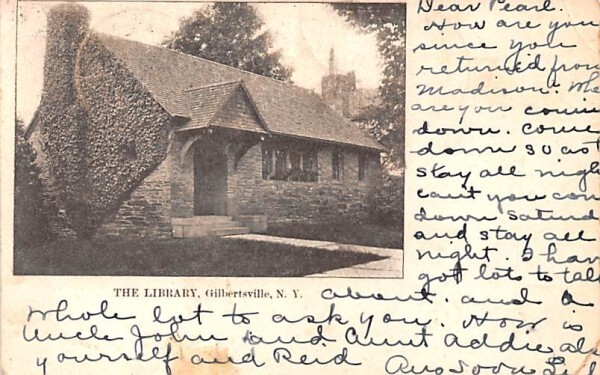 Dear Pearl.
How are you
since you
returned from
Madison. Whe
are you comin
down. come
down so as t
stay all nigh
cant you com
down Saturd
and stay all
night. I hav
got lots to talk
THE LIBRARY, Gilbertsville, N. Y.
about. and a
whole lot to ask you. How is
Uncle John and Aunt Addie als
yourself and Reid
Ans soon